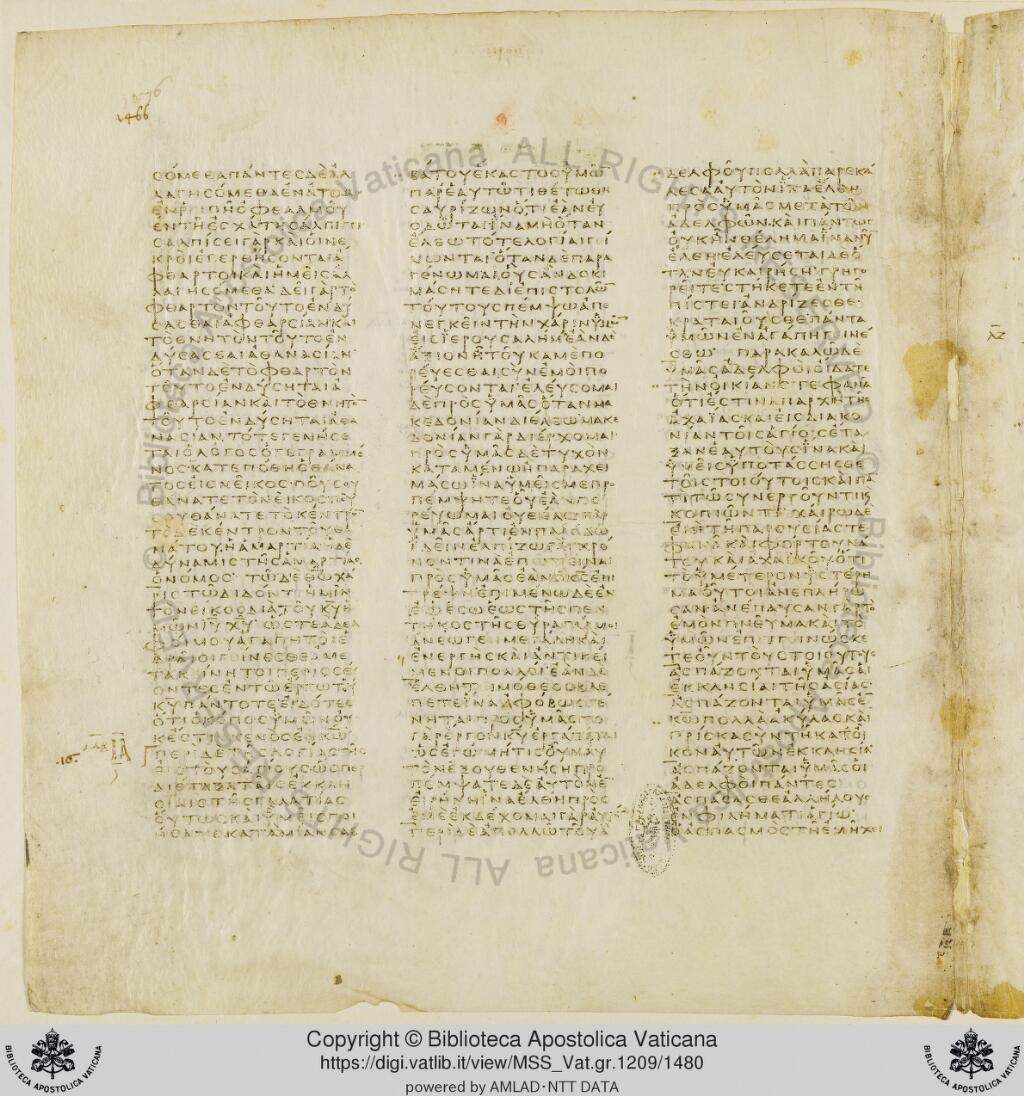 1466
ΣΟΜΕΘΑΠΑΝΤΕΣΔΕΑΛ
ΛΑΓΗΣΟΜΕΘΑΕΝΑΤΟΜ
ΕΝΡΙΠΗΟΦΘΑΛΜΟΥ
ΕΝΤΗΕΣΧΑΤΗΣΑΛΠΙΓΓΙ
ΣΑΛΠΙΣΕΙΓΑΡΚΑΙΟΙΝΕ
ΚΡΟΙΕΓΕΡΘΗΣΟΝΤΑΙΑ
ΦΘΑΡΤΟΙΚΑΙΗΜΕΙΣΑΛ
ΛΑΓΗΣΟΜΕΘΑΔΕΙΓΑΡΤΟ
ΦΘΑΡΤΟΝΤΟΥΤΟΕΝΔΥ
ΣΑΣΘΑΙΑΦΘΑΡΣΙΑΝΚΑΙ
ΤΟΘΝΗΤΟΝΤΟΥΤΟΕΝ
ΔΥΣΑΣΘΑΙΑΘΑΝΑΣΙΑΝ
ΟΤΑΝΔΕΤΟΦΘΑΡΤΟΝ
ΤΟΥΤΟΕΝΔΥΣΗΤΑΙΑ
ΦΘΑΡΣΙΑΝΚΑΙΤΟΘΝΗΤΟ
ΤΟΥΤΟΕΝΔΥΣΗΤΑΙΑΘΑ
ΝΑΣΙΑΝΤΟΤΕΓΕΝΗΣΕ
ΤΑΙΟΛΟΓΟΣΟΓΕΓΡΑΜΜΕ
ΝΟΣΚΑΤΕΠΟΘΗΟΘΑΝΑ
ΤΟΣΕΙΣΝΕΙΚΟΣΠΟΥΣΟΥ
ΘΑΝΑΤΕΤΟΝΕΙΚΟΣΠΟΥ
ΣΟΥΘΑΝΑΤΕΤΟΚΕΝΤΡΟ
ΤΟΔΕΚΕΝΤΡΟΝΤΟΥΘΑ
ΝΑΤΟΥΗΑΜΑΡΤΙΑΗΔΕ
ΔΥΝΑΜΙΣΤΗΣΑΜΑΡΤΙΑΣ
ΟΝΟΜΟΣΤΩΔΕΘΩΧΑ
ΡΙΣΤΩΔΙΔΟΝΤΙΗΜΙΝ
ΤΟΝΕΙΚΟΣΔΙΑΤΟΥΚΥΗ
ΜΩΝΙΥΧΥΩΣΤΕΑΔΕΛ
ΦΟΙΜΟΥΑΓΑΠΗΤΟΙΕ
ΔΡΑΙΟΙΓΕΙΝΕΣΘΕΑΜΕ
ΤΑΚΙΝΗΤΟΙΠΕΡΙΣΣΕΥ
ΟΝΤΕΣΕΝΤΩΕΡΓΩΤΟΥ
ΚΥΠΑΝΤΟΤΕΕΙΔΟΤΕΣ
ΟΤΙΟΚΟΠΟΣΥΜΩΝΟΥ
ΚΕΣΤΙΚΕΝΟΣΕΝΚΩ
ΠΕΡΙΔΕΤΗΣΛΟΓΙΑΣΤΗΣ
ΕΙΣΤΟΥΣΑΓΙΟΥΣΩΣΠΕΡ
ΔΙΕΤΑΞΑΤΑΙΣΕΚΚΛΗ
ΣΙΑΙΣΤΗΣΓΑΛΑΤΙΑΣ
ΟΥΤΩΣΚΑΙΥΜΕΙΣΠΟΙ
ΗΣΑΤΕΚΑΤΑΜΙΑΝΣΑΒ
ΒΑΤΟΥΕΚΑΣΤΟΣΥΜΩ
ΠΑΡΕΑΥΤΩΤΙΘΕΤΩΘΗ
ΣΑΥΡΙΖΩΝΟΤΙΕΑΝΕΥ
ΟΔΩΤΑΙΙΝΑΜΗΟΤΑΝ
ΕΛΘΩΤΟΤΕΛΟΓΙΑΙΓΕΙ
ΝΩΝΤΑΙΟΤΑΝΔΕΠΑΡΑ
ΓΕΝΩΜΑΙΟΥΣΑΝΔΟΚΙ
ΜΑΣΗΤΕΔΙΕΠΙΣΤΟΛΩ
ΤΟΥΤΟΥΣΠΕΜΨΩΑΠΕ
ΝΕΓΚΕΙΝΤΗΝΧΑΡΙΝΥΜΩ
ΕΙΣΙΕΡΟΥΣΑΛΗΜΕΑΝΔΕ
ΑΞΙΟΝΗΤΟΥΚΑΜΕΠΟ
ΡΕΥΕΣΘΑΙΣΥΝΕΜΟΙΠΟ
ΡΕΥΣΟΝΤΑΙΕΛΕΥΣΟΜΑΙ
ΔΕΠΡΟΣΥΜΑΣΟΤΑΝΜΑ
ΚΕΔΟΝΙΑΝΔΙΕΛΘΩΜΑΚΕ
ΔΟΝΙΑΝΓΑΡΔΙΕΡΧΟΜΑΙ
ΠΡΟΣΥΜΑΣΔΕΤΥΧΟΝ
ΚΑΤΑΜΕΝΩΗΠΑΡΑΧΕΙ
ΜΑΣΩΙΝΑΥΜΕΙΣΜΕΠΡΟ
ΠΕΜΨΗΤΕΟΥΕΑΝΠΟ
ΡΕΥΩΜΑΙΟΥΘΕΛΩΓΑΡ
ΥΜΑΣΑΡΤΙΕΝΠΑΡΟΔΩ
ΙΔΕΙΝΕΛΠΙΖΩΓΑΡΧΡΟ
ΝΟΝΤΙΝΑΕΠΙΜΕΙΝΑΙ
ΠΡΟΣΥΜΑΣΕΑΝΟΚΣΕΠΙ
ΤΡΕΨΗΕΠΙΜΕΝΩΔΕΕΝ
ΕΦΕΣΩΕΩΣΤΗΣΠΕΝ
ΤΗΚΟΣΤΗΣΘΥΡΑΓΑΡΜΟΙ
ΑΝΕΩΓΕΜΕΓΑΛΗΚΑΙ
ΕΝΕΡΓΗΣΚΑΙΑΝΤΙΚΕΙ
ΜΕΝΟΙΠΟΛΛΟΙΕΑΝΔΕ
ΕΛΘΗΤΙΜΟΘΕΟΣΒΛΕ
ΠΕΤΕΙΝΑΑΦΟΒΩΣΓΕ
ΝΗΤΑΙΠΡΟΣΥΜΑΣΤΟ
ΓΑΡΕΡΓΟΝΚΥΕΡΓΑΖΕΤΑΙ
ΩΣΕΓΩΜΗΤΙΣΟΥΝΑΥ
ΤΟΝΕΞΟΥΘΕΝΗΣΗΠΡΟ
ΠΕΜΨΑΤΕΔΕΑΥΤΟΝΕ
ΕΙΡΗΝΗΙΝΑΕΛΘΗΠΡΟΣ
ΕΜΕΕΚΔΕΧΟΜΑΙΓΑΡΑΥΤΟ
ΠΕΡΙΔΕΑΠΟΛΛΩΤΟΥΑ
ΔΕΛΦΟΥΠΟΛΛΑΠΑΡΕΚΑ
ΛΕΣΑΑΥΤΟΝΙΝΑΕΛΘΗ
ΠΡΟΣΥΜΑΣΜΕΤΑΤΩΝ
ΑΔΕΛΦΩΝΚΑΙΠΑΝΤΩΣ
ΟΥΚΗΝΘΕΛΗΜΑΙΝΑΝΥ
ΕΛΘΗΕΛΕΥΣΕΤΑΙΔΕΟ
ΤΑΝΕΥΚΑΙΡΗΣΗΓΡΗΓΟ
ΡΕΙΤΕΣΤΗΚΕΤΕΕΝΤΗ
ΠΙΣΤΕΙΑΝΔΡΙΖΕΣΘΕ
ΚΡΑΤΑΙΟΥΣΘΕΠΑΝΤΑ
ΥΜΩΝΕΝΑΓΑΠΗΓΙΝΕ
ΣΘΩ ΠΑΡΑΚΑΛΩΔΕ
ΥΜΑΣΑΔΕΛΦΟΙΟΙΔΑΤΕ
ΤΗΝΟΙΚΙΑΝΣΤΕΦΑΝΑ
ΟΤΙΕΣΤΙΝΑΠΑΡΧΗΤΗΣ
ΑΧΑΙΑΣΚΑΙΕΙΣΔΙΑΚΟ
ΝΙΑΝΤΟΙΣΑΓΙΟΙΣΕΤΑ
ΞΑΝΕΑΥΤΟΥΣΙΝΑΚΑΙ
ΥΜΕΙΣΥΠΟΤΑΣΣΗΣΘΕ
ΤΟΙΣΤΟΙΟΥΤΟΙΣΚΑΙΠΑ
ΤΙΤΩΣΥΝΕΡΓΟΥΝΤΙΚΑΙ
ΚΟΠΙΩΝΤΙΧΑΙΡΩΔΕ
ΕΠΙΤΗΠΑΡΟΥΣΙΑΣΤΕ
ΦΑΝΑΚΑΙΦΟΡΤΟΥΝΑ
ΤΟΥΚΑΙΑΧΑΙΚΟΥΟΤΙ
ΤΟΥΜΕΤΕΡΟΝΥΣΤΕΡΗ
ΜΑΟΥΤΟΙΑΝΕΠΛΗΡΩ
ΣΑΝΑΝΕΠΑΥΣΑΝΓΑΡΤΟ
ΕΜΟΝΠΝΕΥΜΑΚΑΙΤΟ
ΥΜΩΝΕΠΙΓΙΝΩΣΚΕ
ΤΕΟΥΝΤΟΥΣΤΟΙΟΥΤΟΥΣ
ΑΣΠΑΖΟΝΤΑΙΥΜΑΣΑΙ
ΕΚΚΛΗΣΙΑΙΤΗΣΑΣΙΑΣ
ΑΣΠΑΖΟΝΤΑΙΥΜΑΣΕ
ΚΩΠΟΛΛΑΑΚΥΛΑΣΚΑΙ
ΠΡΙΣΚΑΣΥΝΤΗΚΑΤΟΙ
ΚΟΝΑΥΤΩΝΕΚΚΛΗΣΙΑ
ΑΣΠΑΖΟΝΤΑΙΥΜΑΣΟΙ
ΑΔΕΛΦΟΙΠΑΝΤΕΣ
ΑΣΠΑΣΑΣΘΕΑΛΛΗΛΟΥΣ
ΕΝΦΙΛΗΜΑΤΙΑΓΙΩ
ΟΑΣΠΑΣΜΟΣΤΗΕΜΗΧΕΙ
Copyright © Biblioteca Apostolica Vaticana
https://digi.vatlib.it/view/MSS_Vat.gr.1209/1480
powered by AMLAD·NTT DATA